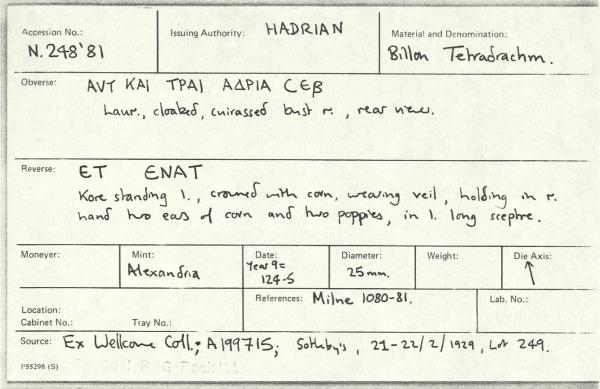 Accession No.: Issuing Authority: HADRIAN Material and Denomination:
N.248'81 Billon Tetradrachm.
Obverse: AVT KAI TPAI AΔPIA CЄB
Laur., cloaked, cuirassed bust r., rear view.
Reverse: ET ЄNAT
Kore standing l., crowned with corn, wearing veil, holding in r.
hand two ears of corn and two poppies, in l. long sceptre.
Moneyer: Mint: Date: Diameter: Weight: Die Axis:
Alexandria Year 9= 25mm. ↑
124-5
References: Milne 1080-81. Lab. No.:
Location:
Cabinet No.: Tray No.:
Source: Ex Wellcome Coll.; A199715; Sotheby's, 21-22/2/1929, Lot 249.
P55298 (S)